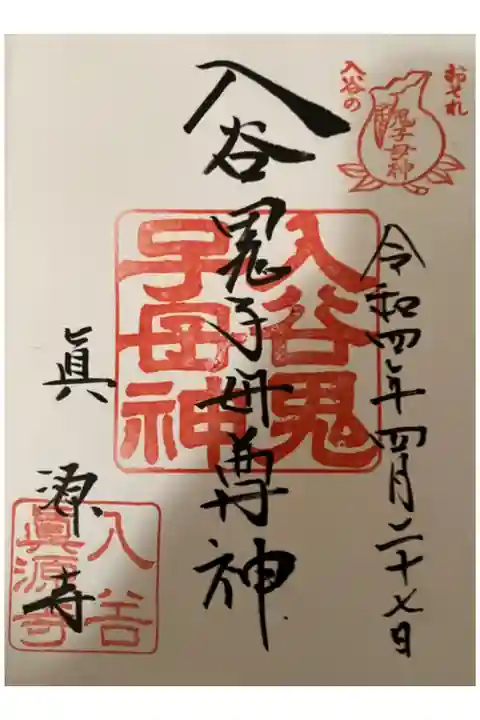 おそれ
入谷の
鬼子母神
令和四年四月二十七日
入谷鬼子母尊神
入谷鬼
子母神
眞源寺
入谷
眞源寺